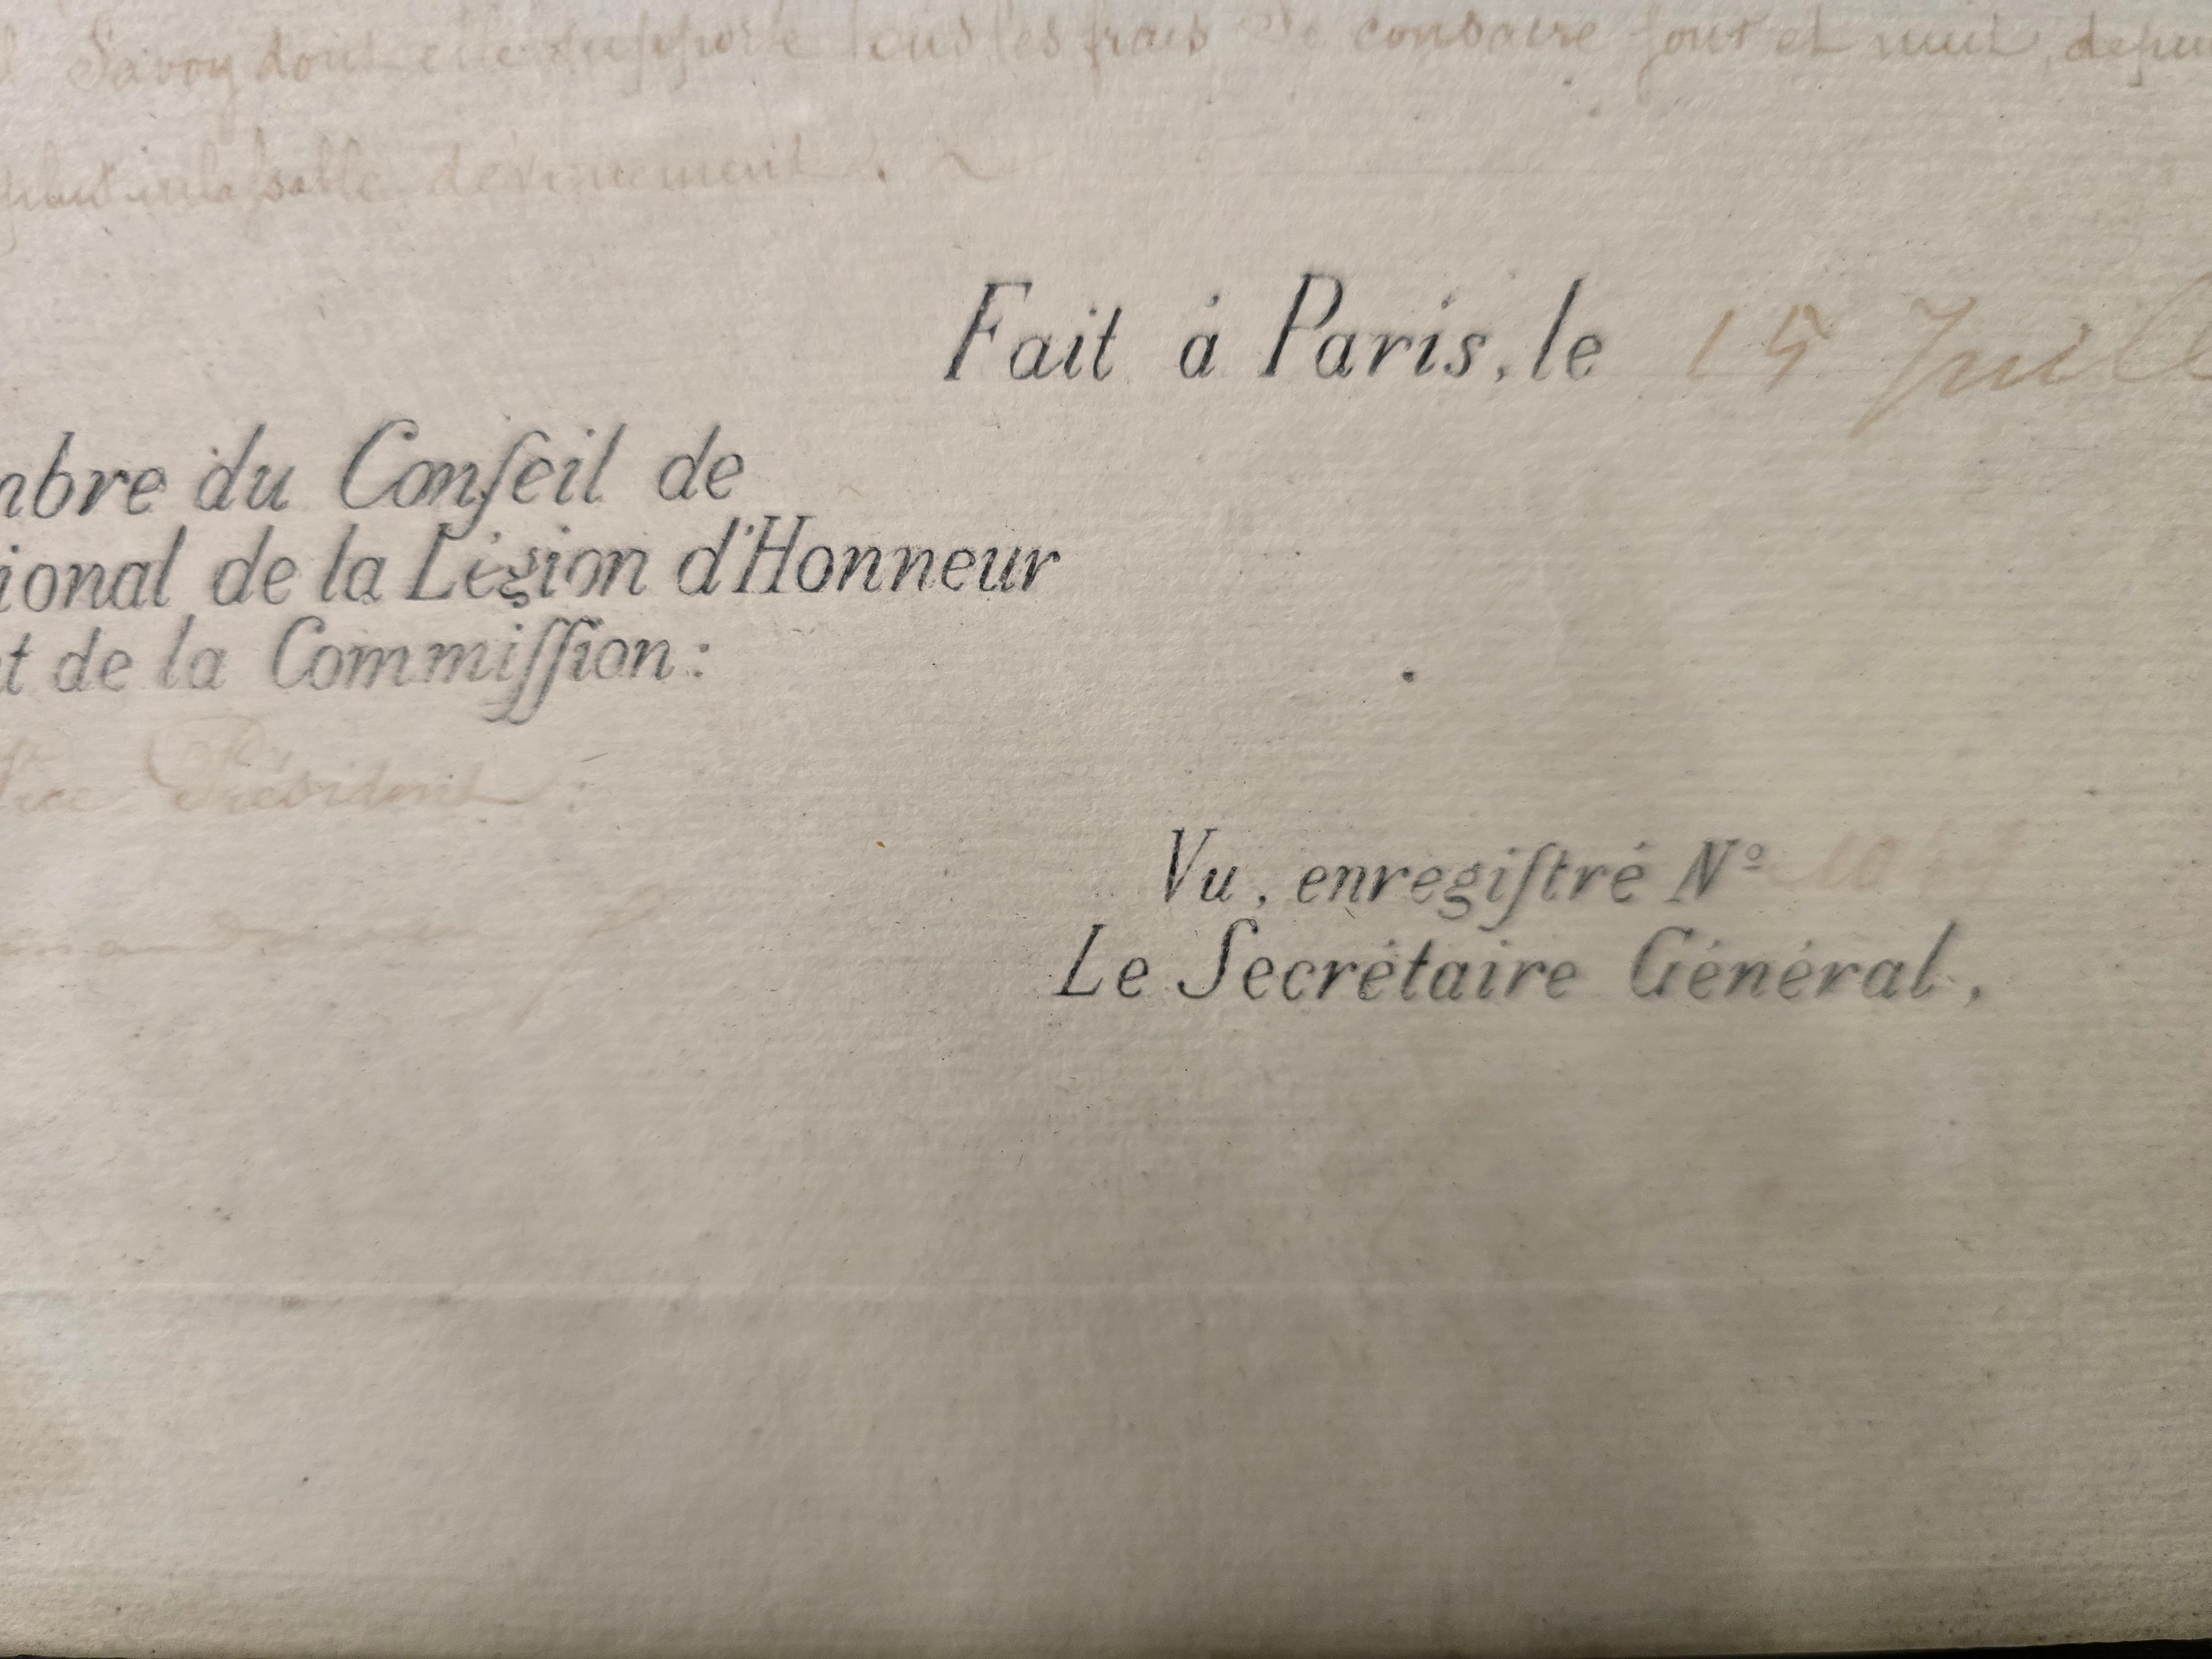 Savoy dont elle supporte tous les frais se consacre jour et nuit, depuis
inlassable dévouement.
Fait à Paris, le 15 Juill
mbre du Conſeil de
ional de la Légion d'Honneur
t de la Commiſſion:
Vice Président:
Vu, enregiſtré Nº
Le Secrétaire Général,